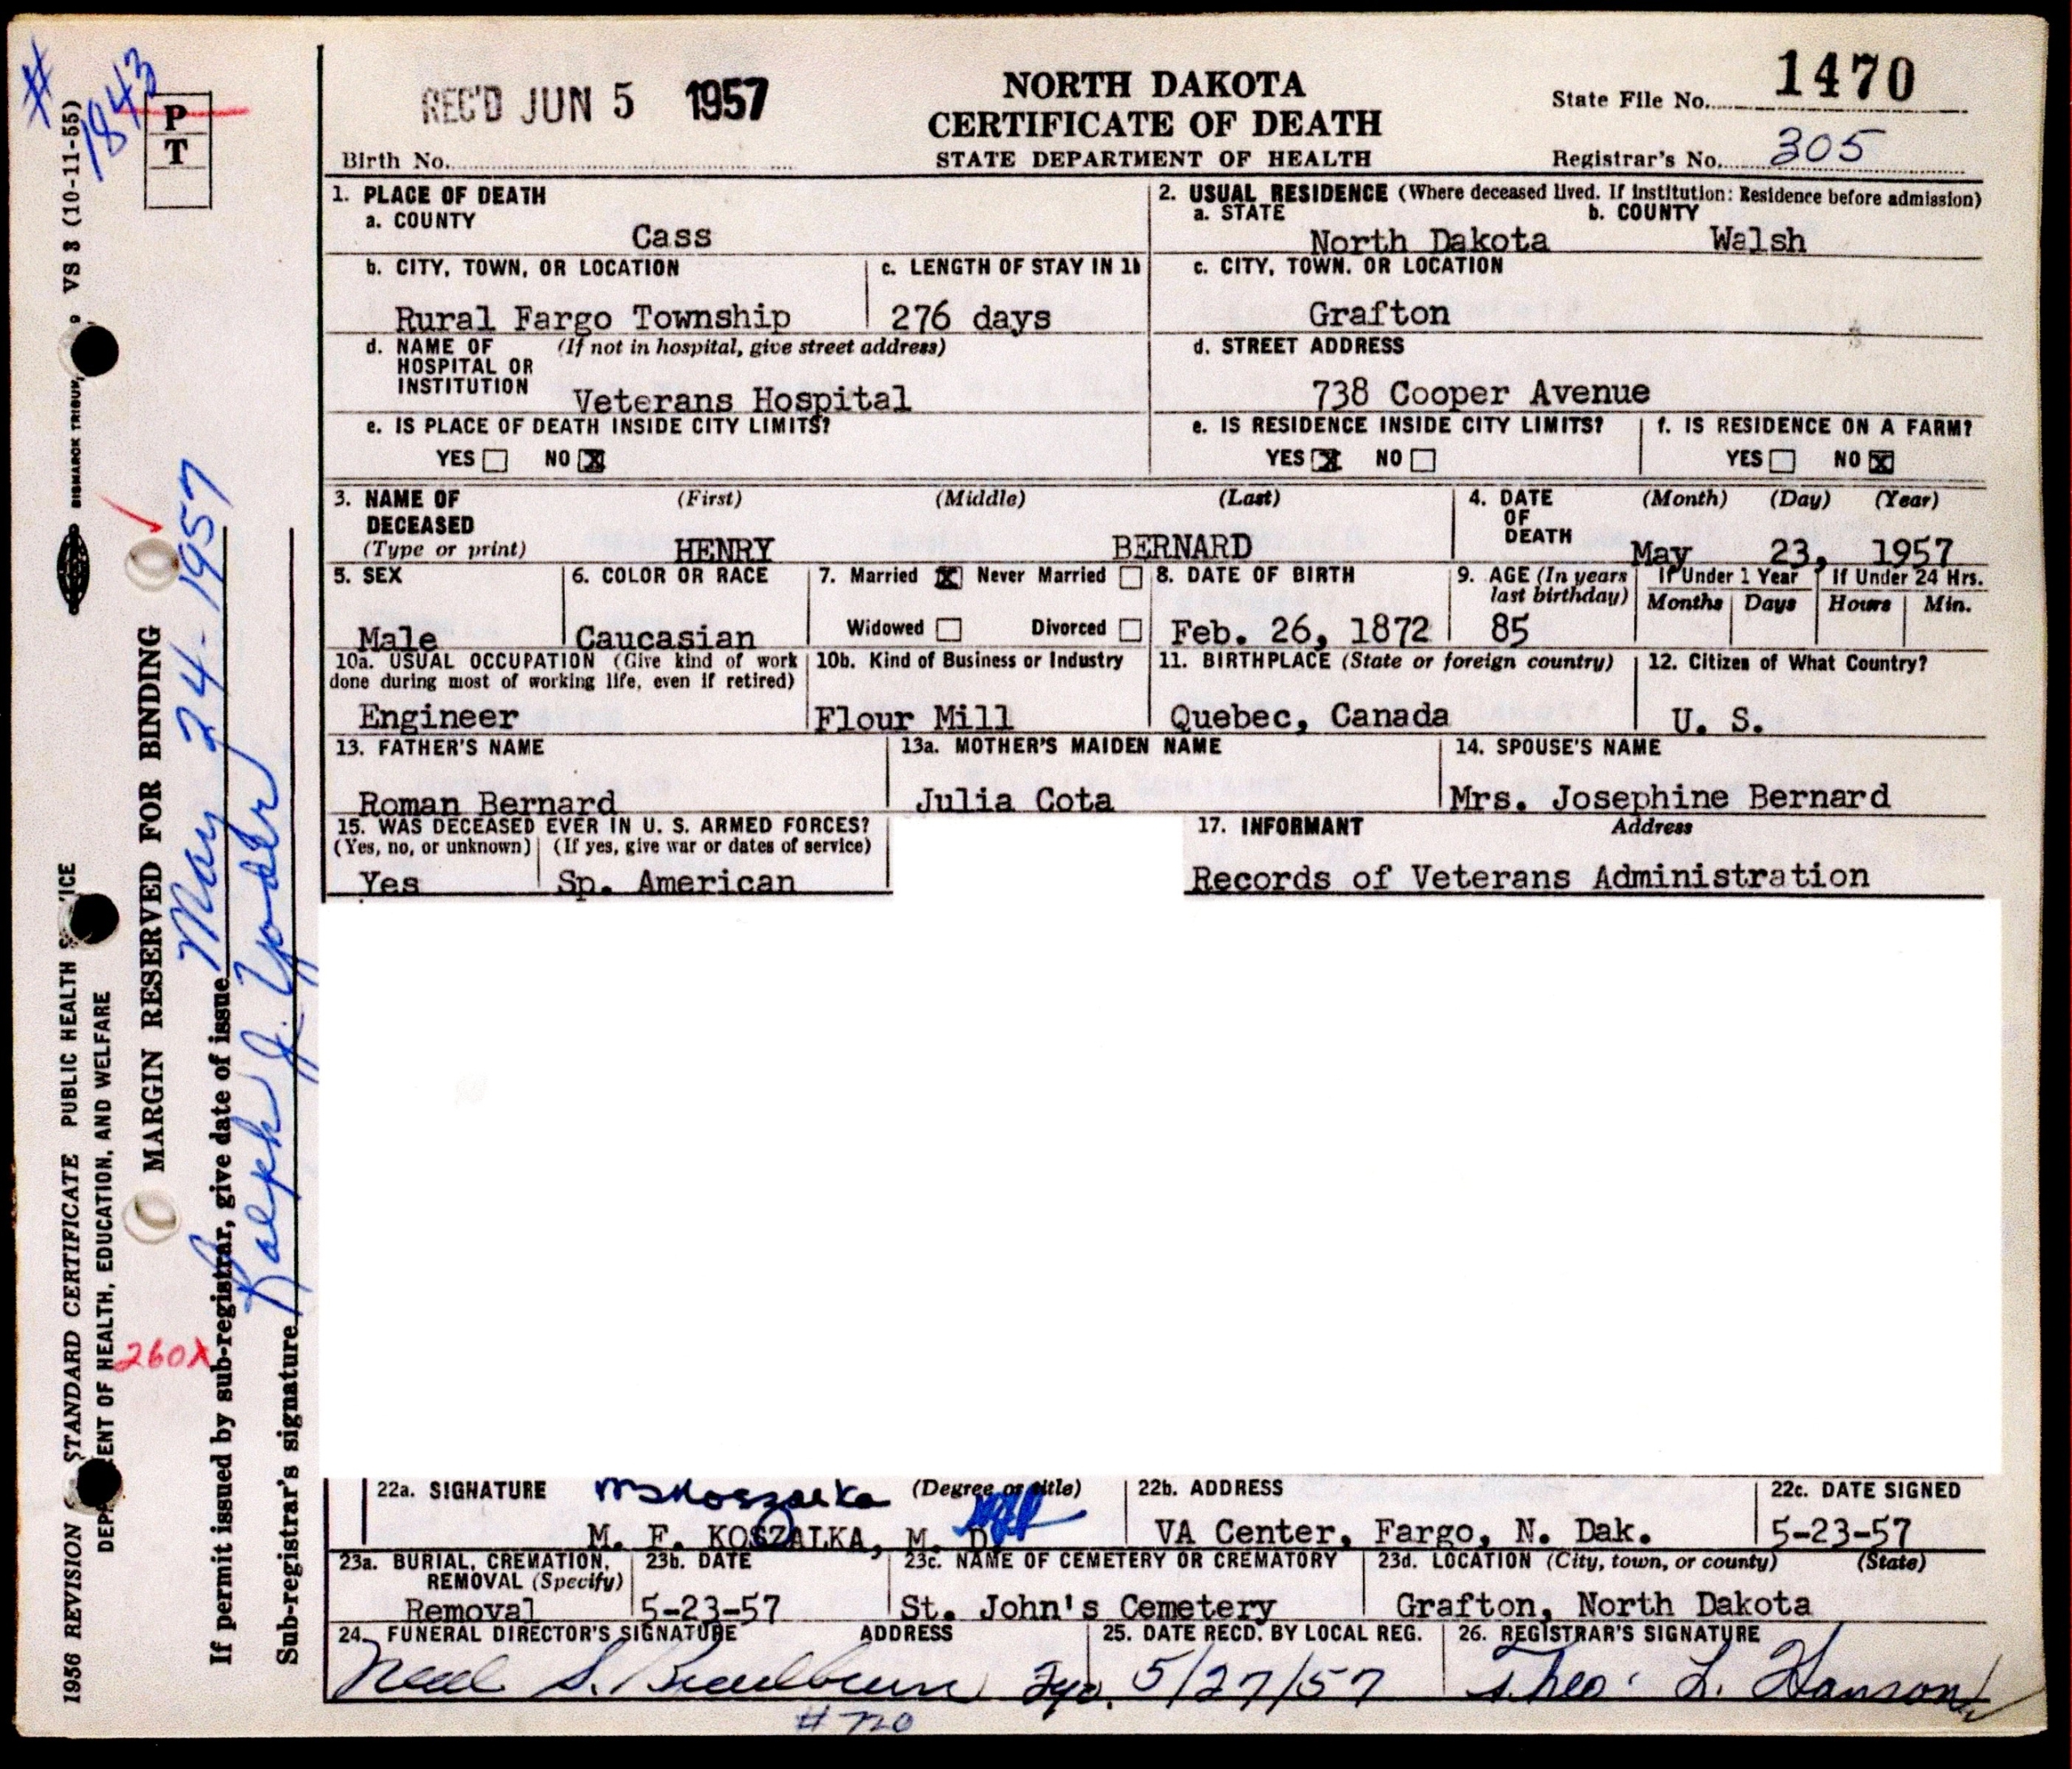 # 1843
P
T
REC'D JUN 5 1957
NORTH DAKOTA
CERTIFICATE OF DEATH
STATE DEPARTMENT OF HEALTH
State File No. 1470
Registrar's No. 305
Birth No.
1. PLACE OF DEATH
a. COUNTY
Cass
b. CITY, TOWN, OR LOCATION
Rural Fargo Township
c. LENGTH OF STAY IN 1b
276 days
d. NAME OF HOSPITAL OR INSTITUTION (If not in hospital, give street address)
Veterans Hospital
e. IS PLACE OF DEATH INSIDE CITY LIMITS?
YES NO X
2. USUAL RESIDENCE (Where deceased lived. If institution: Residence before admission)
a. STATE
North Dakota
b. COUNTY
Walsh
c. CITY, TOWN, OR LOCATION
Grafton
d. STREET ADDRESS
738 Cooper Avenue
e. IS RESIDENCE INSIDE CITY LIMITS?
YES X NO
f. IS RESIDENCE ON A FARM?
YES NO X
3. NAME OF DECEASED (Type or print)
(First) (Middle) (Last)
HENRY BERNARD
4. DATE OF DEATH
(Month) (Day) (Year)
May 23, 1957
5. SEX
Male
6. COLOR OR RACE
Caucasian
7. Married X Never Married
Widowed Divorced
8. DATE OF BIRTH
Feb. 26, 1872
9. AGE (In years last birthday)
85
If Under 1 Year
Months Days
If Under 24 Hrs.
Hours Min.
10a. USUAL OCCUPATION (Give kind of work done during most of working life, even if retired)
Engineer
10b. Kind of Business or Industry
Flour Mill
11. BIRTHPLACE (State or foreign country)
Quebec, Canada
12. Citizen of What Country?
U. S.
13. FATHER'S NAME
Roman Bernard
13a. MOTHER'S MAIDEN NAME
Julia Cota
14. SPOUSE'S NAME
Mrs. Josephine Bernard
15. WAS DECEASED EVER IN U. S. ARMED FORCES?
(Yes, no, or unknown) (If yes, give war or dates of service)
Yes Sp. American
17. INFORMANT Address
Records of Veterans Administration
22a. SIGNATURE (Degree or title)
M. F. KOSZALKA, M. D.
22b. ADDRESS
VA Center, Fargo, N. Dak.
22c. DATE SIGNED
5-23-57
23a. BURIAL, CREMATION, REMOVAL (Specify)
Removal
23b. DATE
5-23-57
23c. NAME OF CEMETERY OR CREMATORY
St. John's Cemetery
23d. LOCATION (City, town, or county) (State)
Grafton, North Dakota
24. FUNERAL DIRECTOR'S SIGNATURE ADDRESS
# 720
25. DATE RECD. BY LOCAL REG.
5/27/57
26. REGISTRAR'S SIGNATURE
Theo. L. Hanson
1956 REVISION STANDARD CERTIFICATE PUBLIC HEALTH VS 8 (10-11-55)
BISMARCK TRIBUNE,
OF HEALTH, EDUCATION, AND WELFARE
MARGIN RESERVED FOR BINDING
260X
If permit issued by sub-registrar, give date of issue May 24-1957
Sub-registrar's signature Ralph J. Yoder